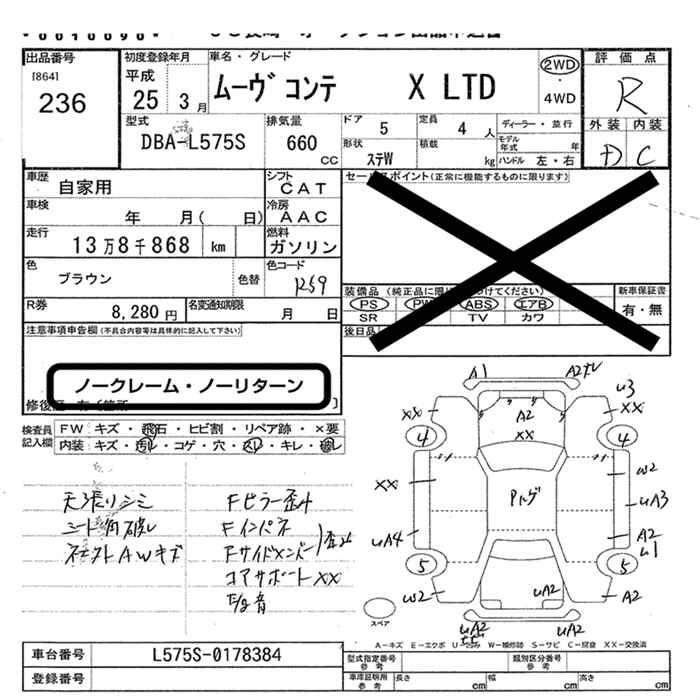 出品番号
[864]
236
初度登録年月
平成
25 3月
車名・グレード
ムーヴ コンテ X LTD
2WD
・
4WD
評価点
R
外装 内装
D C
型式
DBA-L575S
排気量
660
CC
ドア
5
定員
4 人
形状
ステW
積載
kg
ディーラー・並行
モデル年式 年
ハンドル 左・右
車歴
自家用
シフト
CAT
車検
年 月( 日)
冷房
AAC
走行
13万8千868 km
燃料
ガソリン
色
ブラウン
色替
色コード
R59
R券
8,280 円
名変通知期限
月 日
セールスポイント(正常に機能するものに限ります)
装備品
PS PW ABS エアB
SR TV カワ
新車保証書
有・無
後日品
注意事項申告欄(不具合内容等は具体的に記入して下さい)
ノークレーム・ノーリターン
検査員
記入欄
FW キズ・飛石・ヒビ割・リペア跡・×要
内装 キズ・汚れ・コゲ・穴・スレ・キレ・破レ
天張りシミ
シート角破レ
ネクストAWキズ
Fピラー歪ミ
Fインパネ
Fサイドメンバー 歪ミ
コアサポートXX
A1
A2
U3
XX
XX
4
4
A2
XX
W2
XX
UA3
Pトゲ
UA4
A2
U1
5
5
W2
UA2
A2
UA2
UA2
スペア
A-キズ E-エクボ U-凹み W-補修跡 S-サビ C-腐食 XX-交換済
車台番号
L575S-0178384
登録番号
型式指定番号
参考
類別区分番号
参考
車庫証明用
参考
長さ cm
幅 cm
高さ cm